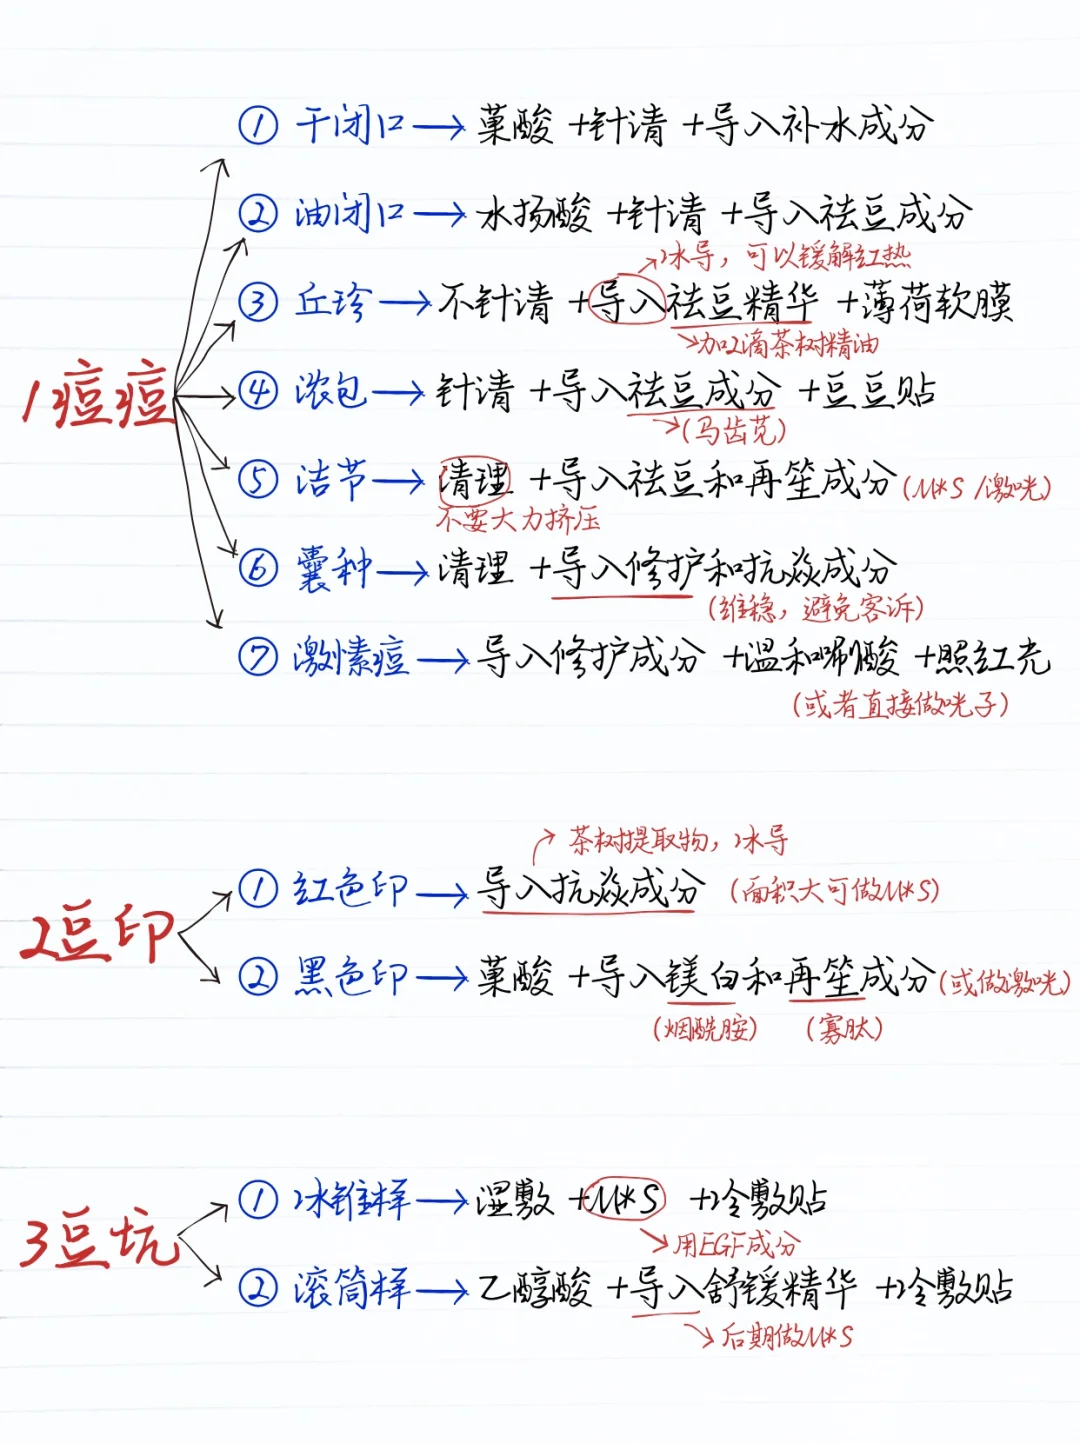 ① 干闭口→菓酸+针清+导入补水成分
② 油闭口→水扬酸+针清+导入祛豆成分
冰导，可以缓解红热
③ 丘珍→不针请+导入祛豆精华+薄荷软膜
加2滴茶树精油
1痘痘
④ 浓包→针请+导入祛豆成分+豆豆贴
(马齿苋)
⑤ 洁节→清理+导入祛豆和再笙成分(M*S/激咣)
不要大力挤压
⑥ 囊种→清理+导入修护和抗焱成分
(维稳，避免客诉)
⑦ 激愫痘→导入修护成分+温和唰酸+照红光
(或者直接做咣子)
茶树提取物，冰导
① 红色印→导入抗焱成分(面积大可做M*S)
2豆印
② 黑色印→菓酸+导入镁白和再笙成分(或做激咣)
(烟酰胺) (寡肽)
① 冰锥样→湿敷+M*S+冷敷贴
3豆坑
用EGF成分
② 滚筒样→乙醇酸+导入舒缓精华+冷敷贴
后期做M*S